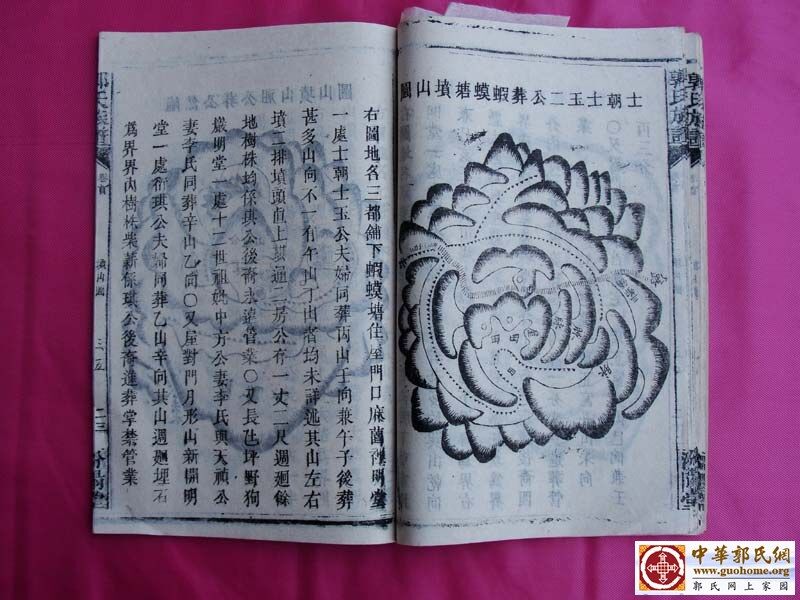 郭氏族譜
士朝士玉二公葬蝦蟆塘墳山圖
右圖地名三都舖下蝦蟆塘住屋門口麻園裡明堂
一處士朝士玉公夫婦同葬丙山壬向兼午子後葬
甚多山向不一有午山丁山者均未詳述其山左右
墳二排墳頭直上邊二房公存一丈二尺週廻餘
地樹株均係琪公後裔永遠管業〇又長坪野狗
巖明堂一處十二世祖妣中方公妻李氏與天禎公
妻李氏同葬辛山乙向〇又屋對門月形山新開明
堂一處衍琪公夫婦同葬乙山辛向其山週廻埋石
為界界內樹株柴薪係琪公後裔進葬掌禁管業
郭氏族譜
卷首
墳山圖
三五
二三
汾陽堂
中華郭氏網
www.guohome.org
郭氏网上家园